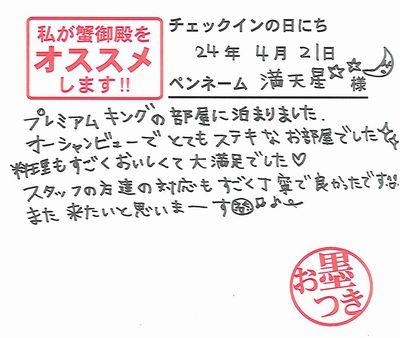 私が蟹御殿を
オススメ
します!!
チェックインの日にち
24年 4月 21日
ペンネーム 満天星☆☆ 様
プレミアムキングの部屋に泊まりました.
オーシャンビューで とても ステキな お部屋でした☆
料理もすごくおいしくて 大満足でした♡
スタッフの方達の対応も すごく丁寧で 良かったです
また 来たいと思いまーす♪
お墨つき